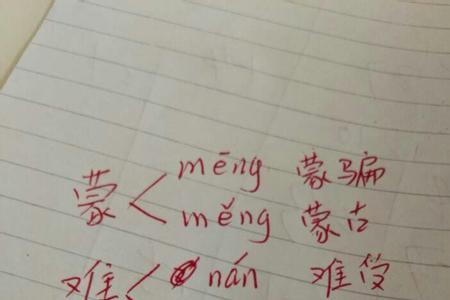 mēng 蒙骗
蒙
měng 蒙古
难 nán 难